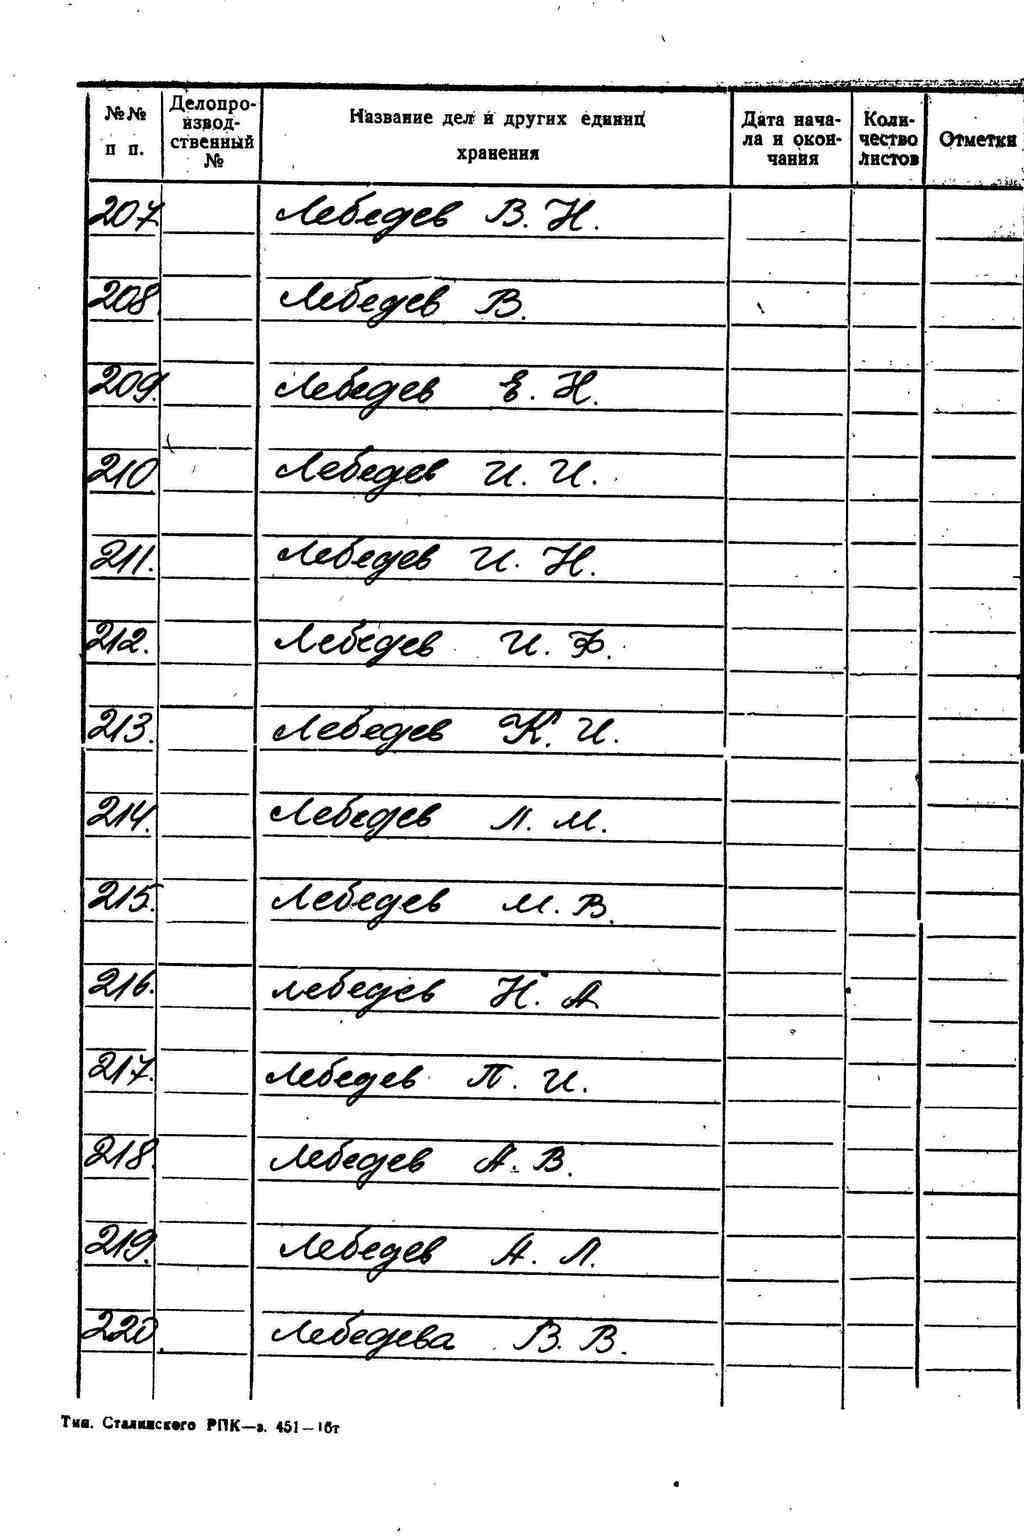 №№ п п. Делопроизводственный № Название дел и других единиц хранения Дата начала и окончания Количество листов Отметки
207 Лебедев В. Н.
208 Лебедев В.
209. Лебедев Е. Н.
210 Лебедев И. И.
211. Лебедев И. Н.
212. Лебедев И. Ф.
213. Лебедев К. И.
214. Лебедев Л. М.
215. Лебедев М. В.
216. Лебедев Н. А
217. Лебедев П. И.
218. Лебедев А. В.
219. Лебедев А. Л.
220 Лебедева В. В.
Тип. Сталинского РПК—з. 451—16т